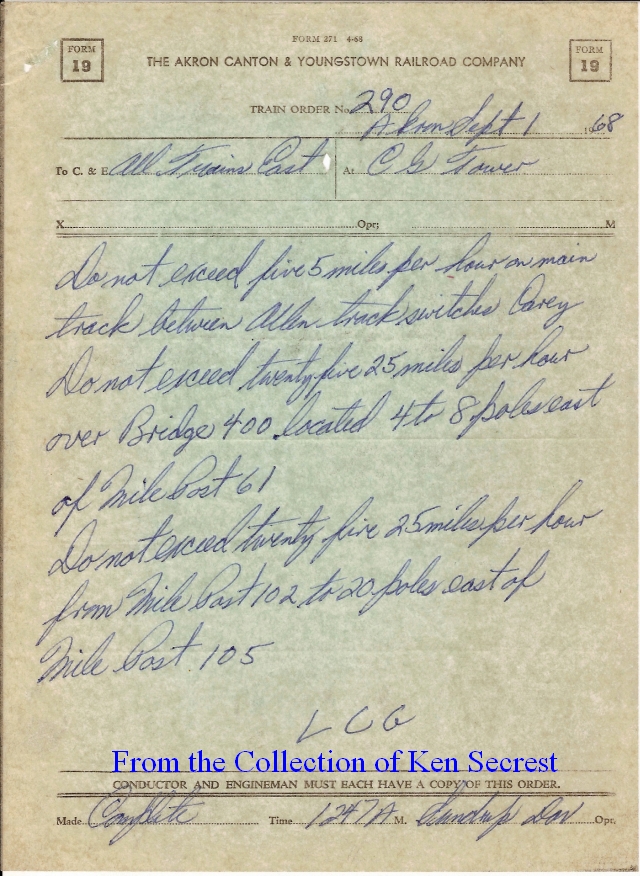 FORM 271 4-68
FORM 19
THE AKRON CANTON & YOUNGSTOWN RAILROAD COMPANY
FORM 19
TRAIN ORDER No. 290
Akron Sept 1 1968
To C. & E. All Trains East At C G Tower
X Opr; M
Do not exceed five 5 miles per hour on main
track between Allen track switches Carey
Do not exceed twenty five 25 miles per hour
over Bridge 400 located 4 to 8 poles east
of Mile Post 61
Do not exceed twenty five 25 miles per hour
from Mile Post 102 to 20 poles east of
Mile Post 105
L C G
From the Collection of Ken Secrest
CONDUCTOR AND ENGINEMAN MUST EACH HAVE A COPY OF THIS ORDER.
Made Complete Time 1247 A M. Opr.